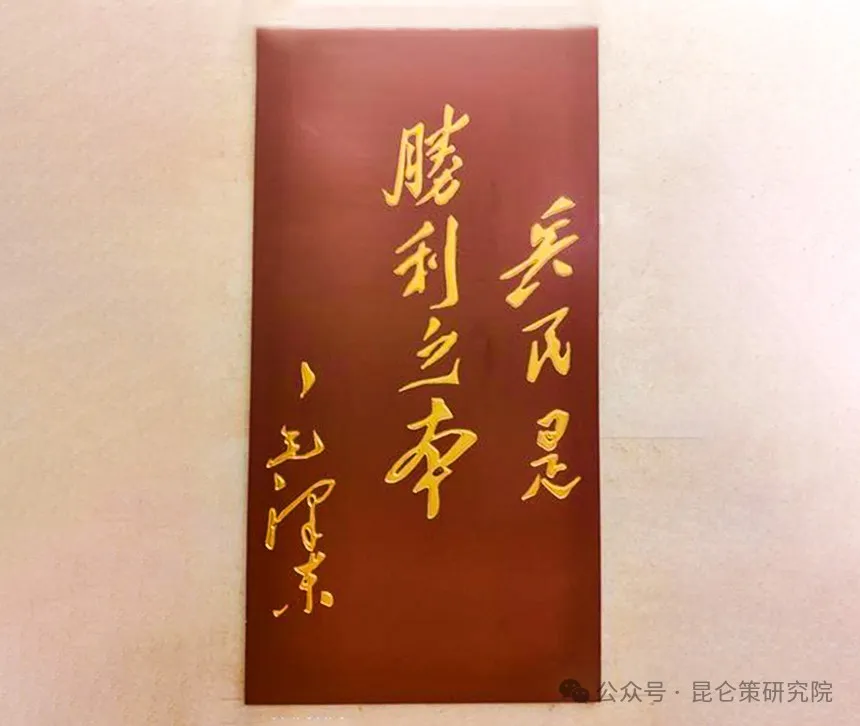 兵民是
勝利之本
毛澤东
公众号 · 昆仑策研究院